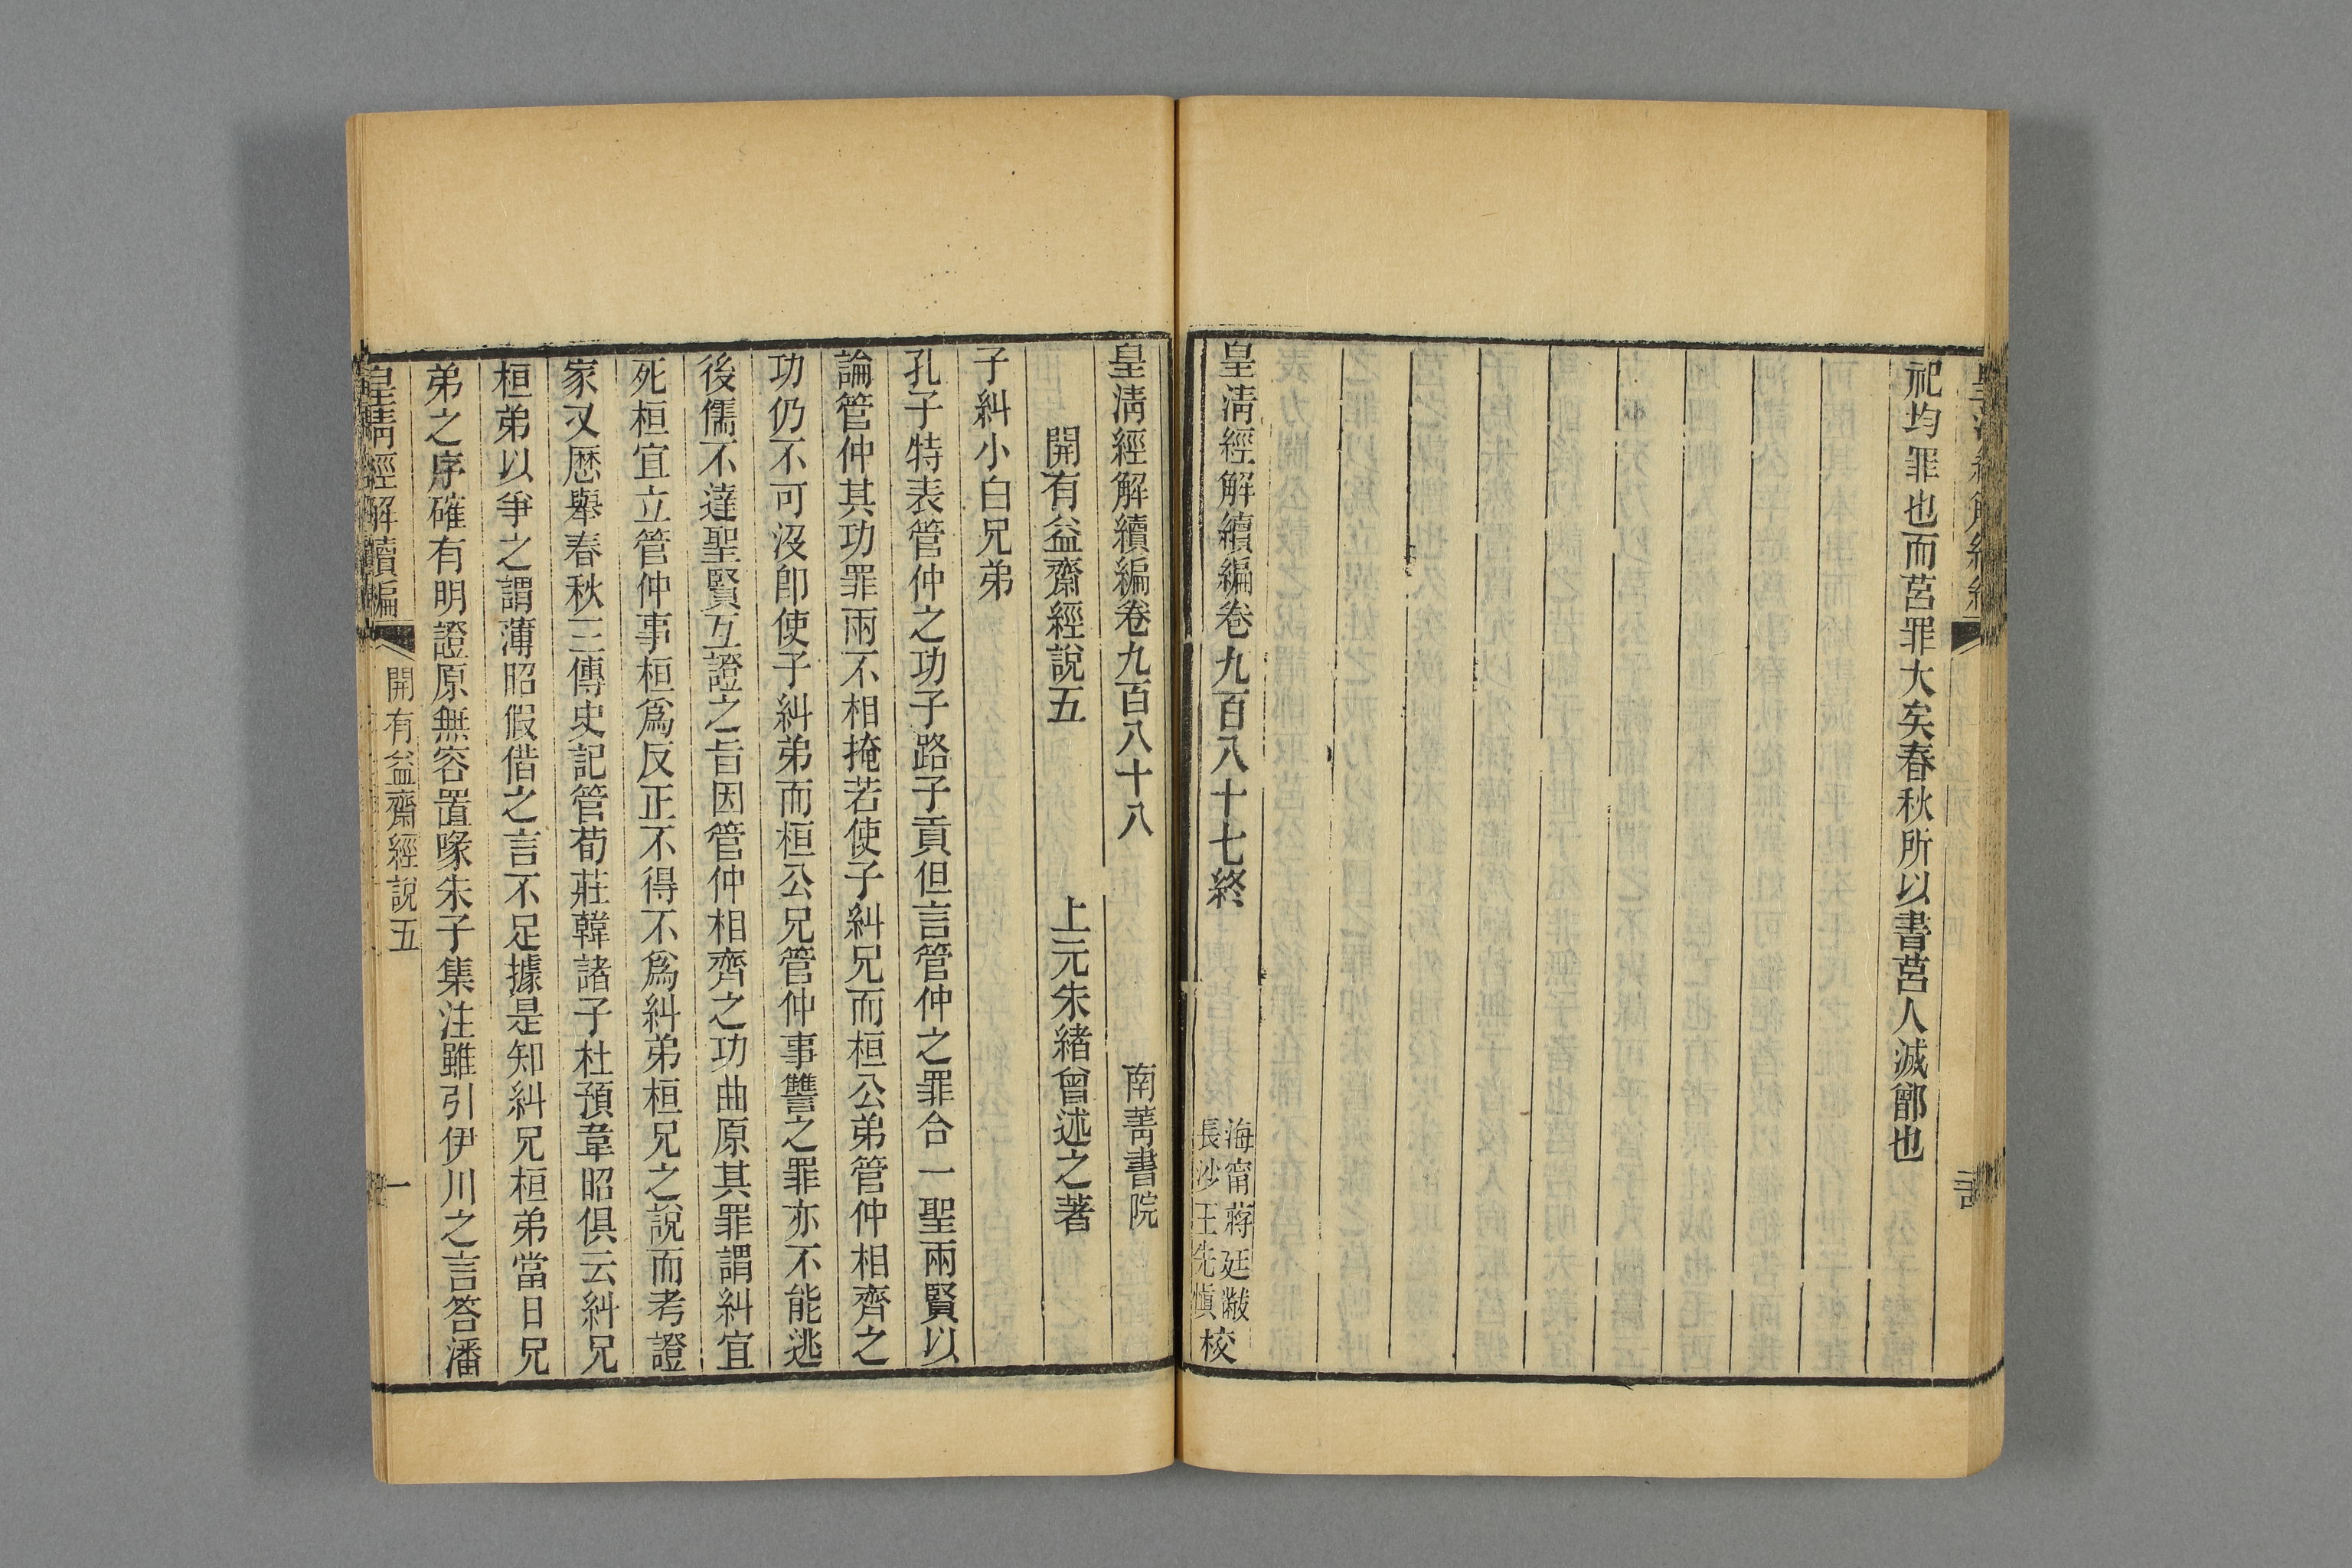 祀均罪也而莒罪大矣春秋所以書莒人滅鄫也
皇淸經解續編卷九百八十七終
海甯蔣廷黻
長沙王先愼
校
皇淸經解續編卷九百八十八
南菁書院
開有益齋經說五
上元朱緒曾述之著
子糾小白兄弟
孔子特表管仲之功子路子貢但言管仲之罪合一聖兩賢以
論管仲其功罪兩不相掩若使子糾兄而桓公弟管仲相齊之
功仍不可沒卽使子糾弟而桓公兄管仲事讐之罪亦不能逃
後儒不達聖賢互證之旨因管仲相齊之功曲原其罪謂糾宜
死桓宜立管仲事桓爲反正不得不爲糾弟桓兄之說而考證
家又歷舉春秋三傳史記管荀莊韓諸子杜預韋昭俱云糾兄
桓弟以爭之謂薄昭假借之言不足據是知糾兄桓弟當日兄
弟之序確有明證原無容置喙朱子集注雖引伊川之言答潘
皇淸經解續編
開有益齋經說五
一